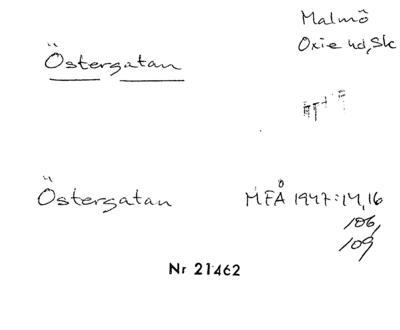 Östergatan
Malmö
Oxie hd, Sk
Östergatan
MFÅ 1947: 14, 16
106,
109
Nr 21462